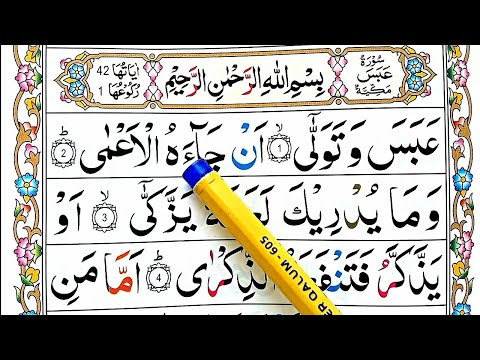 سُوْرَةُ عَبَسَ مَكِّيَّةٌ
بِسْمِ اللّٰهِ الرَّحْمٰنِ الرَّحِيْمِ
اٰيَاتُهَا 42
رُكُوْعُهَا 1
عَبَسَ وَتَوَلّٰٓى ۙ﴿1﴾ اَنْ جَآءَهُ الْاَعْمٰى ؕ﴿2﴾
وَمَا يُدْرِيْكَ يَزَّكّٰٓى ۙ﴿3﴾ اَوْ
يَذَّكَّرُ فَتَنْفَعَ الذِّكْرٰى ؕ﴿4﴾ اَمَّا مَنِ
ER QALUM-605